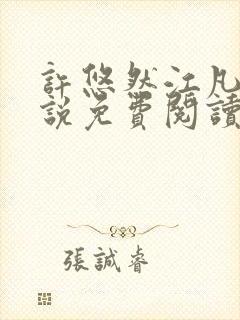 許悠然江凡
說免費閱讀
張誠睿